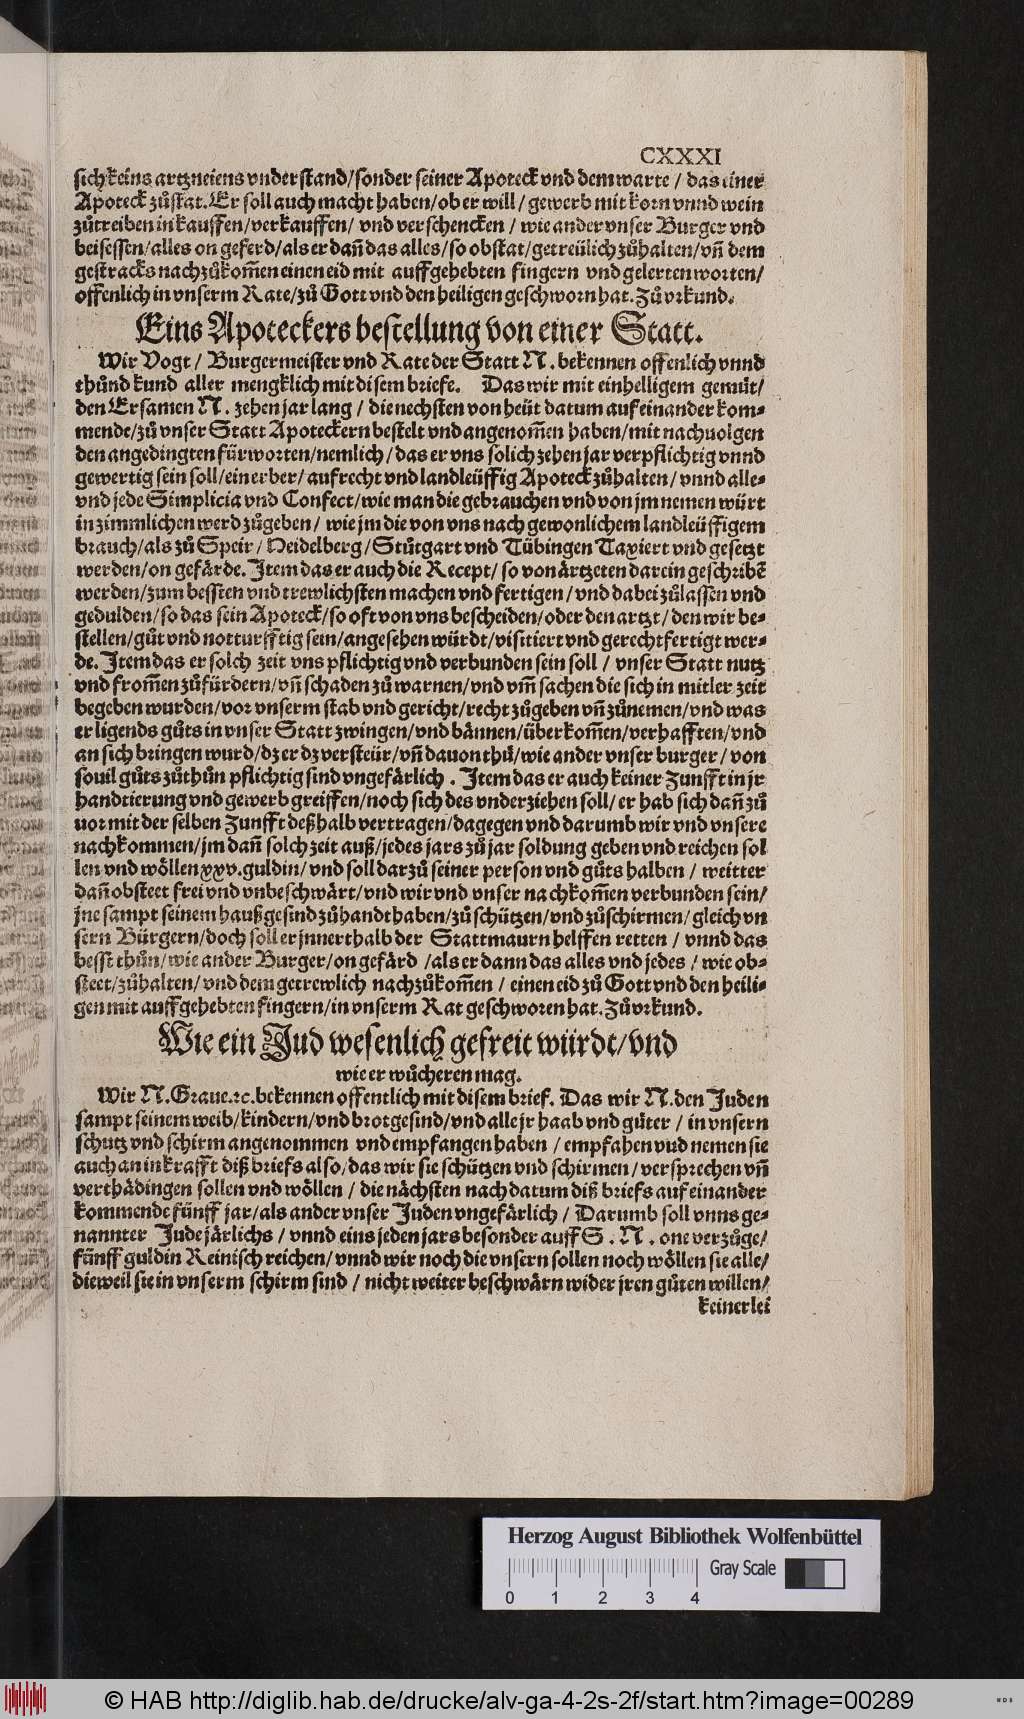 CXXXI
sich keins artzneiens vnderstand/sonder seiner Apoteck vnd dem warte / das einer
Apoteck zůstat. Er soll auch macht haben/ob er will / gewerb mit korn vnnd wein
zůtreiben in kauffen/verkauffen/ vnd verschencken / wie ander vnser Burger vnd
beisessen/alles on geferd/als er dañ das alles/so obstat/getreülich zůhalten/vñ dem
gestracks nachzůkom̃en einen eid mit auffgehebten fingern vnd gelerten worten/
offenlich in vnserm Rate/zů Gott vnd den heiligen geschworn hat. Zů vrkund.
Eins Apoteckers bestellung von einer Statt.
Wir Vogt / Burgermeister vnd Rate der Statt N. bekennen offenlich vnnd
thůnd kund aller mengklich mit disem briefe. Das wir mit einhelligem gemüt/
den Ersamen N. zehen jar lang / die nechsten von heüt datum auf einander kom-
mende/zů vnser Statt Apoteckern bestelt vnd angenom̃en haben/mit nachuolgen
den angedingten fürworten/nemlich/das er vns solich zehen jar verpflichtig vnnd
gewertig sein soll/ein erber/aufrecht vnd landleüffig Apoteck zůhalten/vnnd alle-
vnd jede Simplicia vnd Confect/wie man die gebrauchen vnd von jm nemen würt
in zimmlichen werd zůgeben/ wie jm die von vns nach gewonlichem landleüffigem
brauch/als zů Speir/Heidelberg/Stůtgart vnd Tübingen Taxiert vnd gesetzt
werden/on gefärde. Item das er auch die Recept/ so von ärtzeten darein geschribē
werden/zum bessten vnd trewlichsten machen vnd fertigen/vnd dabei zůlassen vnd
gedulden/so das sein Apoteck/so oft von vns bescheiden/oder den artzt/den wir be-
stellen/gůt vnd notturfftig sein/angesehen würdt/visitiert vnd gerechtfertigt wer-
de. Item das er solch zeit vns pflichtig vnd verbunden sein soll / vnser Statt nutz
vnd from̃en zůfürdern/vñ schaden zů warnen/vnd vm̃ sachen die sich in mitler zeit
begeben wurden/vor vnserm stab vnd gericht/recht zůgeben vñ zůnemen/vnd was
er ligends gůts in vnser Statt zwingen/vnd bännen/überkom̃en/verhafften/vnd
an sich bringen wurd/dz er dz versteür/vñ dauon thů/wie ander vnser burger/von
souil gůts zůthůn pflichtig sind vngefärlich. Item das er auch keiner Zunfft in jr
handtierung vnd gewerb greiffen/noch sich des vnderziehen soll/er hab sich dañ zů
uor mit der selben Zunfft deßhalb vertragen/dagegen vnd darumb wir vnd vnsere
nachkommen/jm dañ solch zeit auß/jedes jars zů jar soldung geben vnd reichen sol
len vnd wöllen xxv. guldin/vnd soll darzů seiner person vnd gůts halben / weitter
dañ obsteet frei vnd vnbeschwärt/vnd wir vnd vnser nachkom̃en verbunden sein/
jne sampt seinem haußgesind zůhandthaben/zů schützen/vnd zůschirmen/gleich vn
sern Bürgern/doch soll er jnnerthalb der Stattmaurn helffen retten / vnnd das
besst thůn/wie ander Burger/on gefärd /als er dann das alles vnd jedes / wie ob-
steet/zůhalten/ vnd dem getrewlich nachzůkom̃en / einen eid zů Gott vnd den heili-
gen mit auffgehebten fingern/in vnserm Rat geschworen hat. Zů vrkund.
Wie ein Jud wesenlich gefreit würdt/vnd
wie er wůcheren mag.
Wir N. Graue. ꝛc. bekennen offentlich mit disem brief. Das wir N. den Juden
sampt seinem weib/kindern/vnd brotgesind/vnd alle jr haab vnd güter / in vnsern
schutz vnd schirm angenommen vnd empfangen haben / empfahen vnd nemen sie
auch an in krafft diß briefs also/das wir sie schützen vnd schirmen/versprechen vñ
verthädingen sollen vnd wöllen / die nächsten nach datum diß briefs auf einander
kommende fünff jar/als ander vnser Juden vngefärlich/ Darumb soll vnns ge-
nannter Jude järlichs / vnnd eins jeden jars besonder auff S. N. one verzüge/
fünff guldin Reinisch reichen/vnnd wir noch die vnsern sollen noch wöllen sie alle/
dieweil sie in vnserm schirm sind / nicht weiter beschwärn wider jren gůten willen/
keinerlei
Herzog August Bibliothek Wolfenbüttel
Gray Scale
0 1 2 3 4
© HAB http://diglib.hab.de/drucke/alv-ga-4-2s-2f/start.htm?image=00289